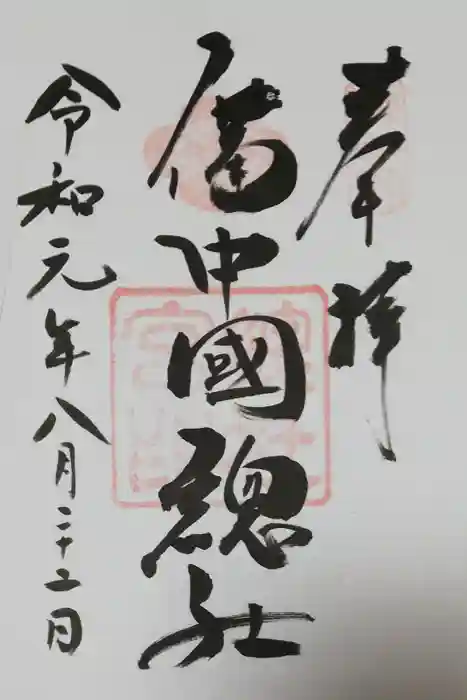 奉拝
備中國總社
令和元年八月二十二日